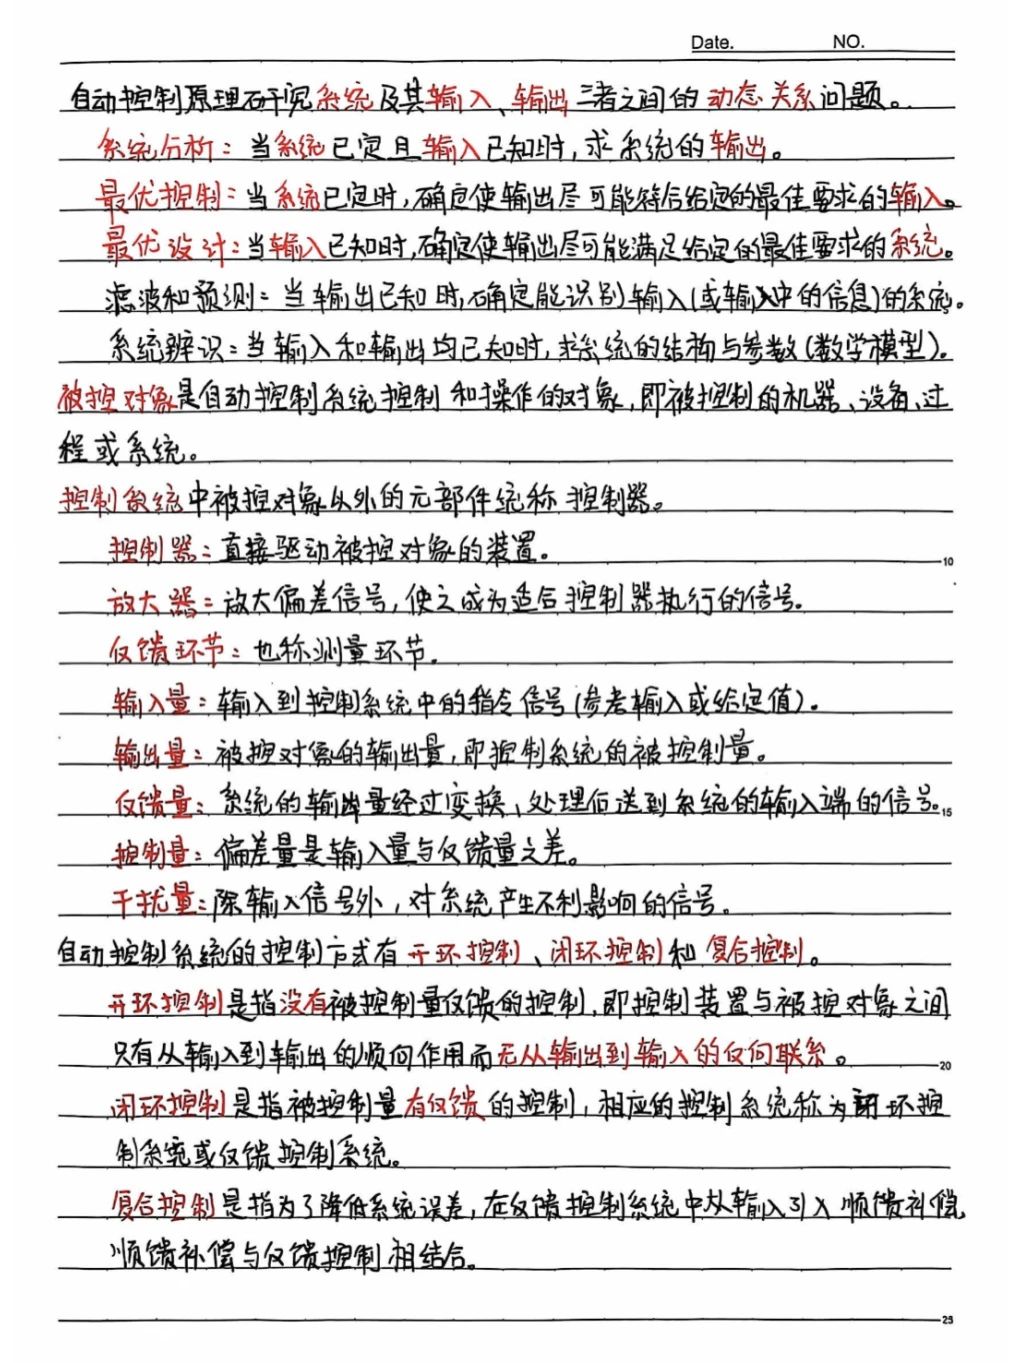 Date. NO.
自动控制原理研究系统及其输入、输出三者之间的动态关系问题。
系统分析：当系统已定且输入已知时，求系统的输出。
最优控制：当系统已定时，确定使输出尽可能符合给定的最佳要求的输入。
最优设计：当输入已知时，确定使输出尽可能满足给定的最佳要求的系统。
滤波和预测：当输出已知时，确定能识别输入（或输入中的信息）的系统。
系统辨识：当输入和输出均已知时，求系统的结构与参数（数学模型）。
被控对象是自动控制系统控制和操作的对象，即被控制的机器、设备、过
程或系统。
控制系统中被控对象以外的元部件统称控制器。
控制器：直接驱动被控对象的装置。
10
放大器：放大偏差信号，使之成为适合控制器执行的信号。
反馈环节：也称测量环节。
输入量：输入到控制系统中的指令信号（参考输入或给定值）。
输出量：被控对象的输出量，即控制系统的被控制量。
反馈量：系统的输出量经过变换、处理后送到系统的输入端的信号。
15
控制量：偏差量是输入量与反馈量之差。
干扰量：除输入信号外，对系统产生不利影响的信号。
自动控制系统的控制方式有开环控制、闭环控制和复合控制。
开环控制是指没有被控制量反馈的控制，即控制装置与被控对象之间
只有从输入到输出的顺向作用而无从输出到输入的反向联系。
20
闭环控制是指被控制量有反馈的控制，相应的控制系统称为闭环控
制系统或反馈控制系统。
复合控制是指为了降低系统误差，在反馈控制系统中从输入引入顺馈补偿，
顺馈补偿与反馈控制相结合。
25